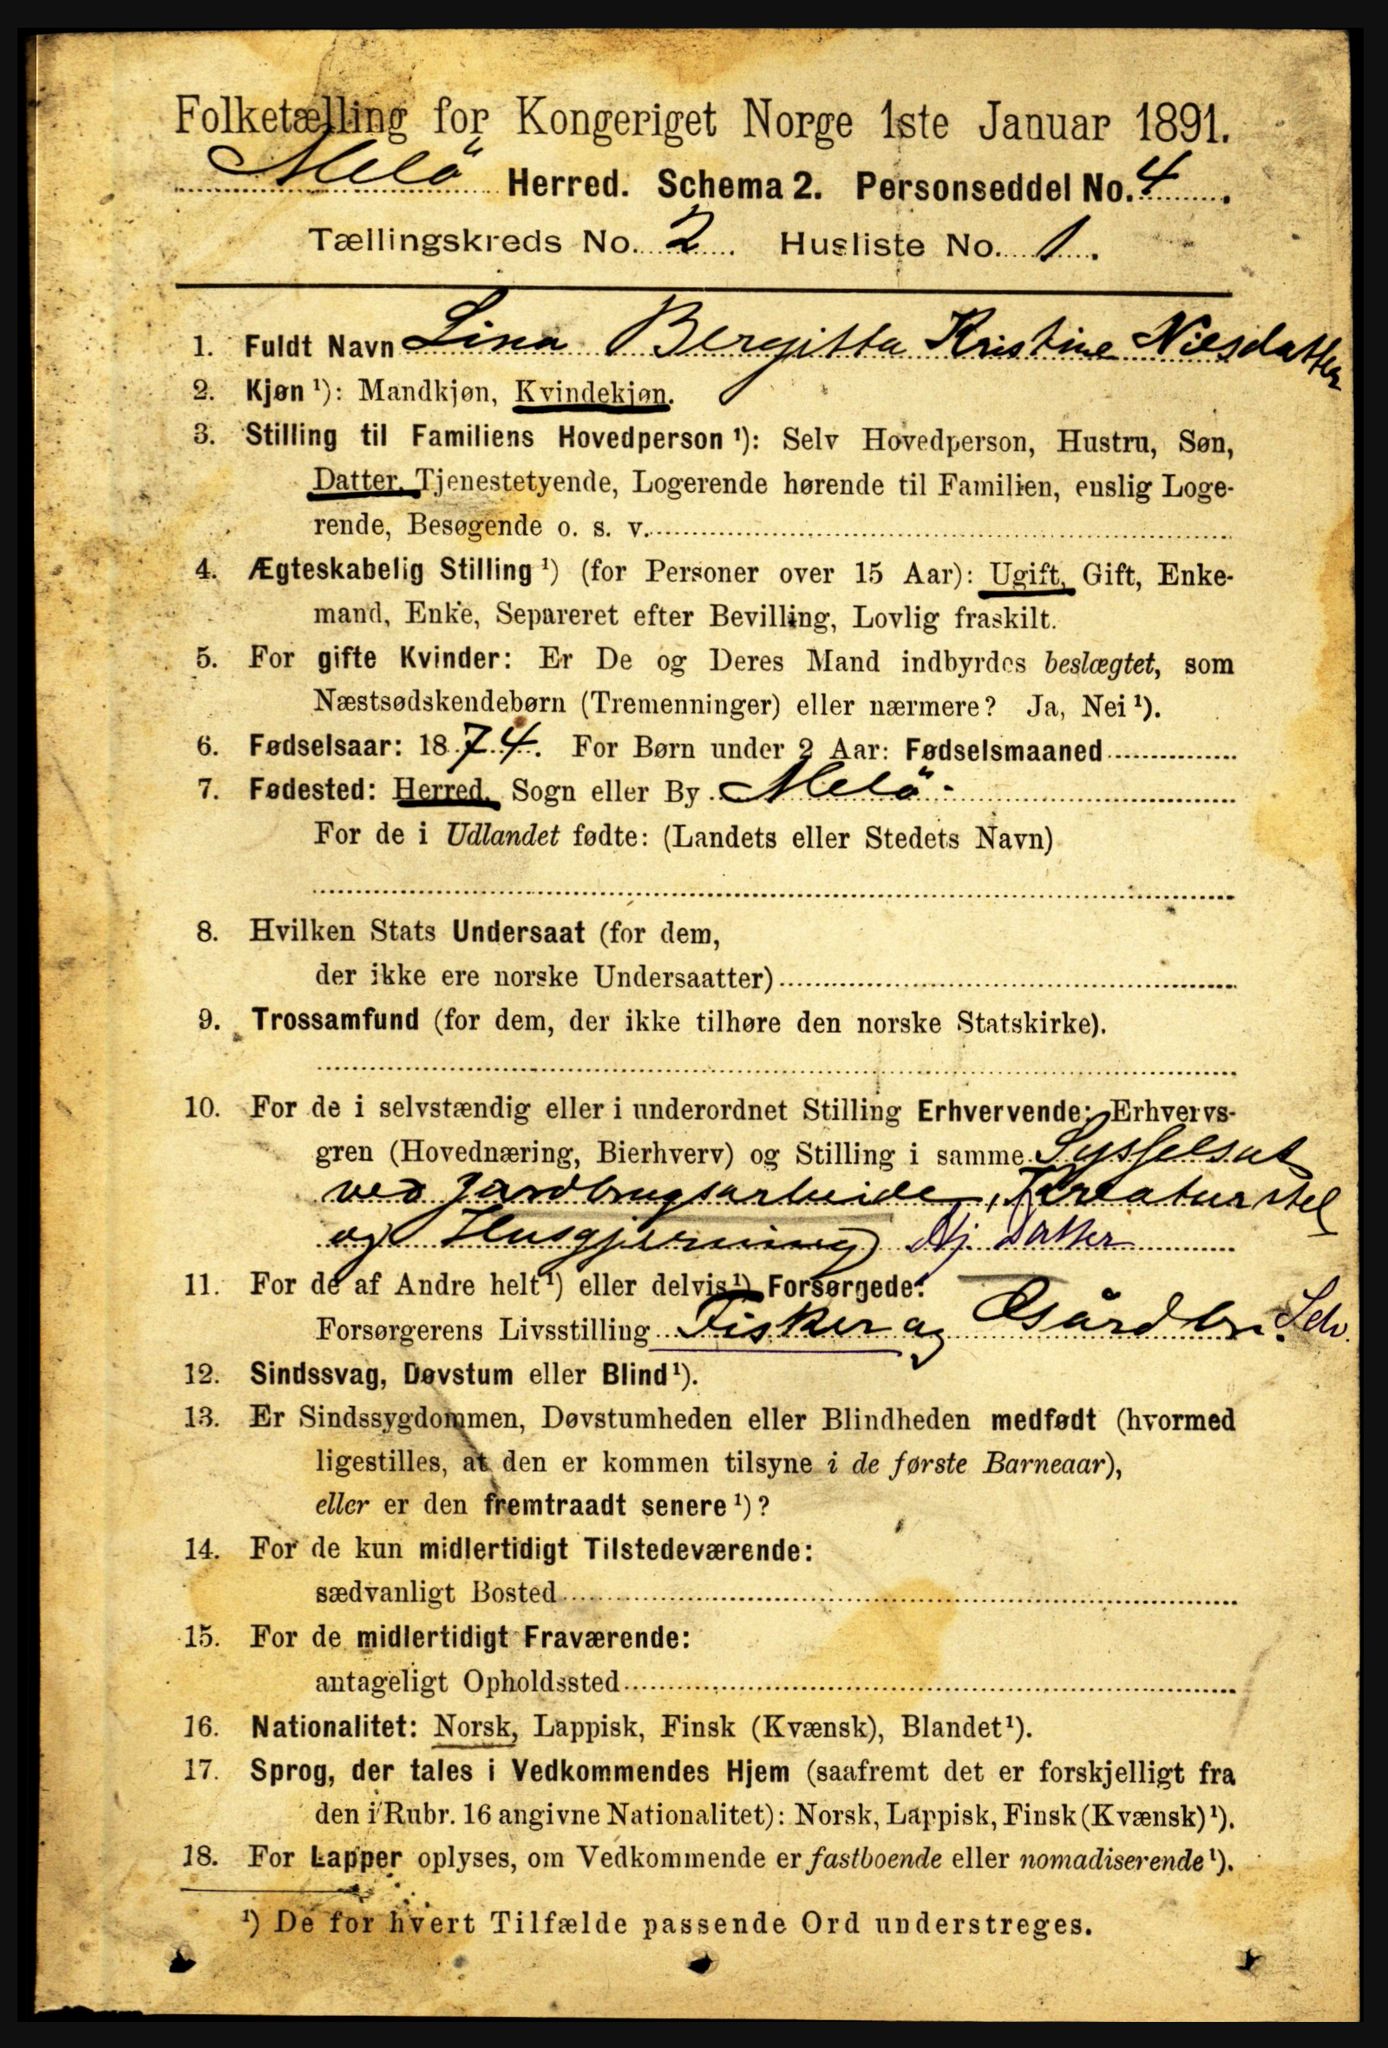 Folketælling for Kongeriget Norge 1ste Januar 1891.
Melö Herred. Schema 2. Personseddel No. 4.
Tællingskreds No. 2. Husliste No. 1.
1. Fuldt Navn Lina Bergitta Kristine Nilsdatter
2. Kjøn ¹): Mandkjøn, Kvindekjøn.
3. Stilling til Familiens Hovedperson ¹): Selv Hovedperson, Hustru, Søn,
Datter, Tjenestetyende, Logerende hørende til Familien, enslig Loge-
rende, Besøgende o. s. v.
4. Ægteskabelig Stilling ¹) (for Personer over 15 Aar): Ugift, Gift, Enke-
mand, Enke, Separeret efter Bevilling, Lovlig fraskilt.
5. For gifte Kvinder: Er De og Deres Mand indbyrdes beslægtet, som
Næstsødskendebørn (Tremenninger) eller nærmere? Ja, Nei ¹).
6. Fødselsaar: 1874. For Børn under 2 Aar: Fødselsmaaned
7. Fødested: Herred, Sogn eller By Melö.
For de i Udlandet fødte: (Landets eller Stedets Navn)
8. Hvilken Stats Undersaat (for dem,
der ikke ere norske Undersaatter)
9. Trossamfund (for dem, der ikke tilhøre den norske Statskirke).
10. For de i selvstændig eller i underordnet Stilling Erhvervende: Erhvervs-
gren (Hovednæring, Bierhverv) og Stilling i samme Sysselsat
ved Jordbrugsarbeide, Kreaturstel
og Husgjerning datter
11. For de af Andre helt ¹) eller delvis ¹) Forsørgede:
Forsørgerens Livsstilling Fisker og Gårdbr. Selv.
12. Sindssvag, Døvstum eller Blind ¹).
13. Er Sindssygdommen, Døvstumheden eller Blindheden medfødt (hvormed
ligestilles, at den er kommen tilsyne i de første Barneaar),
eller er den fremtraadt senere ¹)?
14. For de kun midlertidigt Tilstedeværende:
sædvanligt Bosted
15. For de midlertidigt Fraværende:
antageligt Opholdssted
16. Nationalitet: Norsk, Lappisk, Finsk (Kvænsk), Blandet ¹).
17. Sprog, der tales i Vedkommendes Hjem (saafremt det er forskjelligt fra
den i Rubr. 16 angivne Nationalitet): Norsk, Lappisk, Finsk (Kvænsk) ¹).
18. For Lapper oplyses, om Vedkommende er fastboende eller nomadiserende ¹).
¹) De for hvert Tilfælde passende Ord understreges.